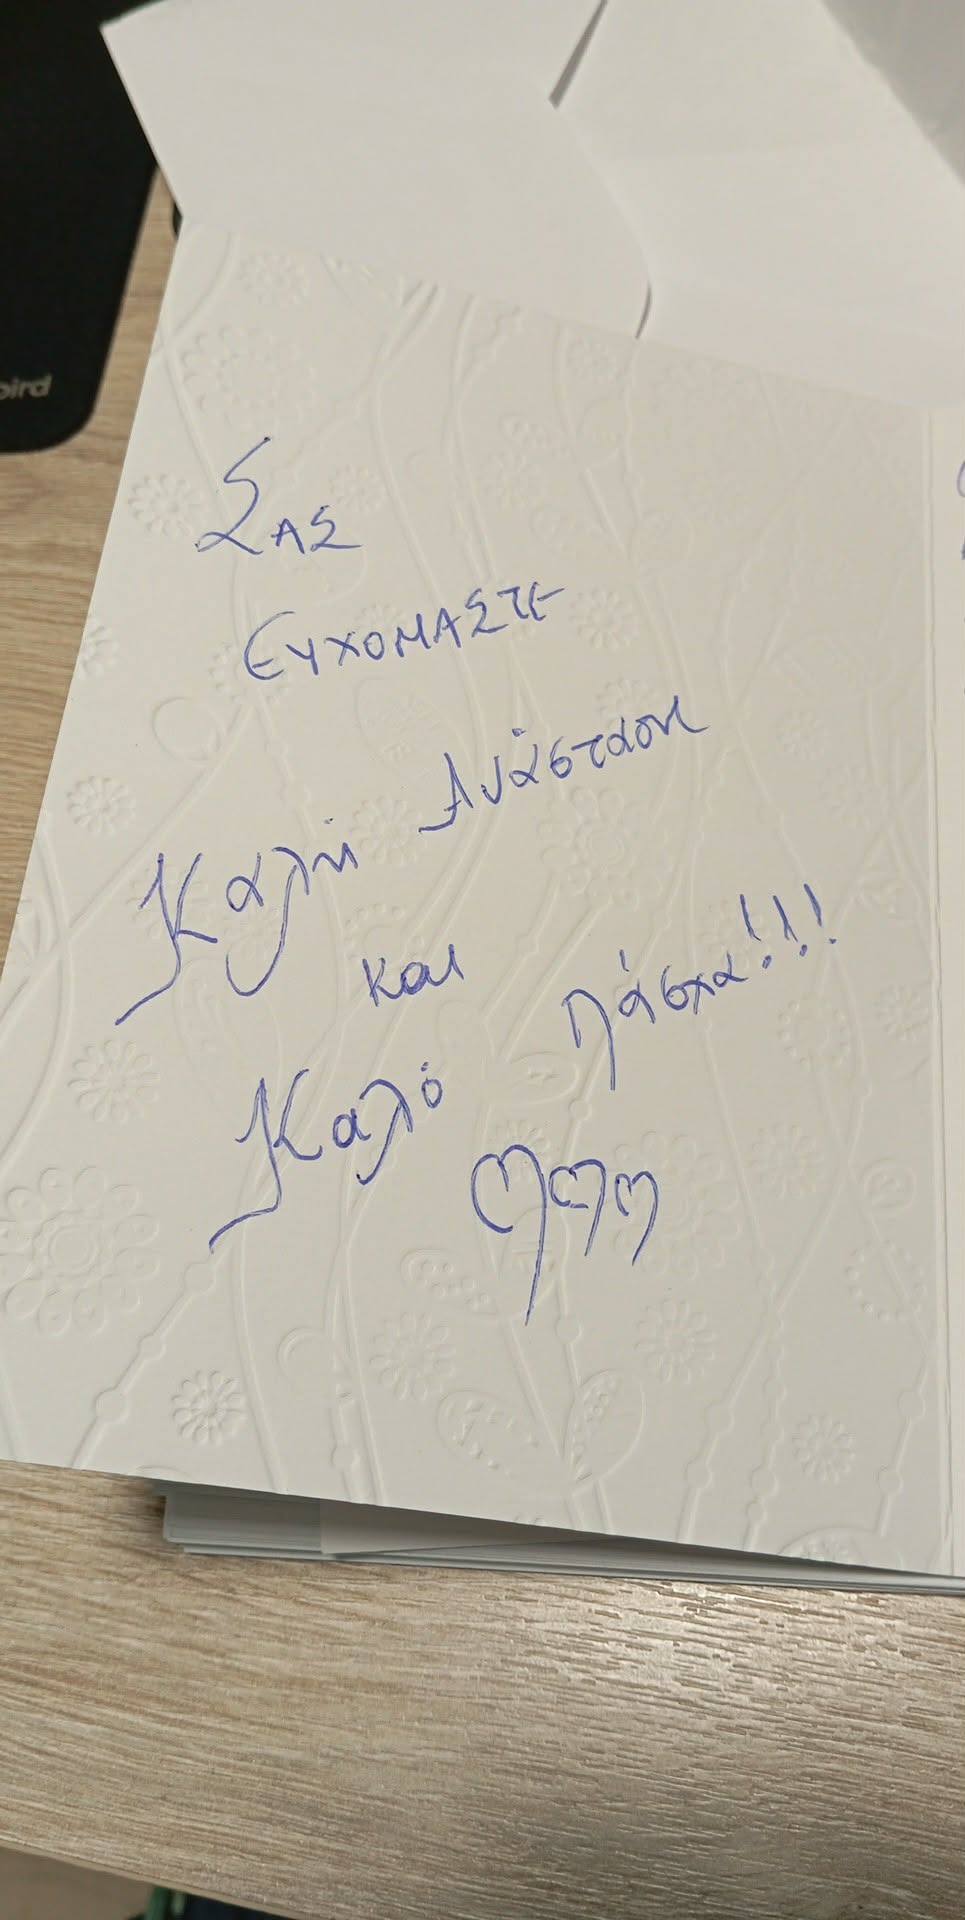 bird
Σας
ΕΥΧΟΜΑΣΤΕ
Καλή Ανάσταση
και
Καλό Πάσχα!!!